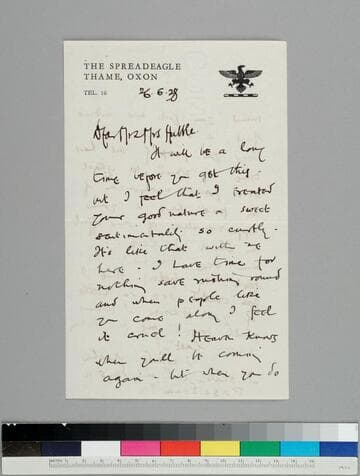 THE SPREADEAGLE
THAME, OXON
TEL. 16
26.6.28
Dear Mr & Mrs Hubble
It will be a long
time before you get this.
but I feel that I treated
your good nature & sweet
sentimentality so curtly.
It's like that with me
here. I have time for
nothing save rushing round
and when people like
you come along I feel
it cruel! Heaven knows
when you'll be coming
again - but when you do